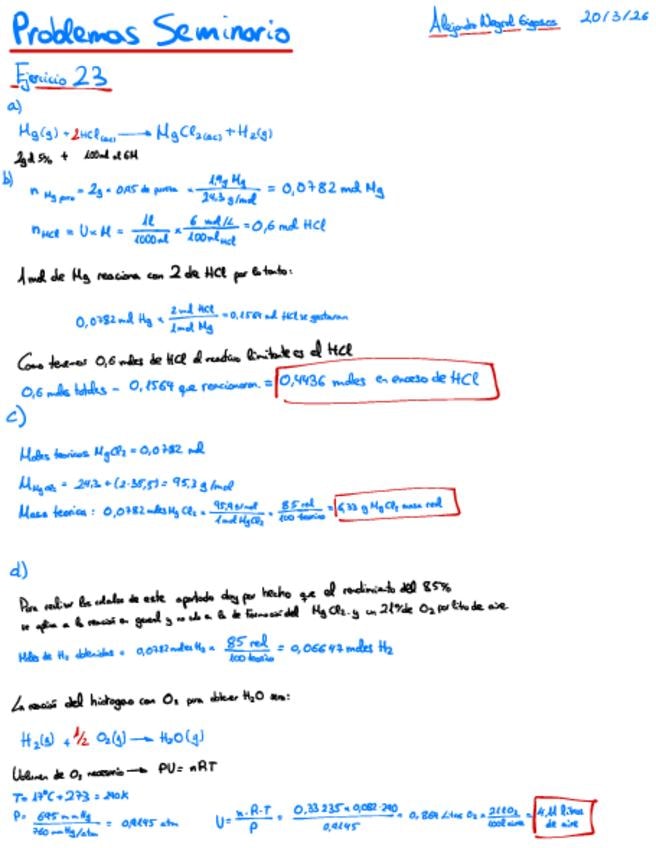 Problemas Seminario
Alejandro 20/3/26
Ejercicio 23
a)
Mg(g) + 2HCl(ac) → MgCl2(ac) + H2(g)
2g al 5% + 100ml al 6M
b)
n Mg puro = 2g × 0,95 de pureza × 1,9g Mg / 24,3 g/mol = 0,0782 mol Mg
nHCl = V×M = 1l / 1000ml × 6 mol/L / 100ml HCl = 0,6 mol HCl
1 mol de Mg reacciona con 2 de HCl por lo tanto:
0,0782 mol Mg × 2 mol HCl / 1 mol Mg = 0,1564 mol HCl se gastaran
Como tenemos 0,6 moles de HCl el reactivo limitante es el HCl
0,6 moles totales - 0,1564 que reaccionaron = 0,4436 moles en exceso de HCl
c)
Moles teoricos MgCl2 = 0,0782 mol
M MgCl2 = 24,3 + (2·35,5) = 95,3 g/mol
Masa teorica: 0,0782 moles MgCl2 × g/mol / 1 mol MgCl2 × 85 real / 100 teorico = 6,33 g MgCl2 masa real
d)
Para realizar los calculos de este apartado doy por hecho que el rendimiento del 85%
se aplica a la reacción en general y no solo a la de formación del MgCl2 y un 21% de O2 por litro de aire
Moles de H2 obtenidos = 0,0782 moles H2 × 85 real / 100 teorico = 0,06647 moles H2
La reacción del hidrogeno con O2 para obtener H2O sera:
H2(g) + 1/2 O2(g) → H2O(g)
Volumen de O2 necesario → PV = nRT
T = 17°C + 273 = 290K
P = 695 mmHg / 760 mmHg/atm = 0,9145 atm
V = n·R·T / P = 0,33235 × 0,082·290 / 0,9145 = 0,864 Litros O2 × / = 4,11 litros de aire